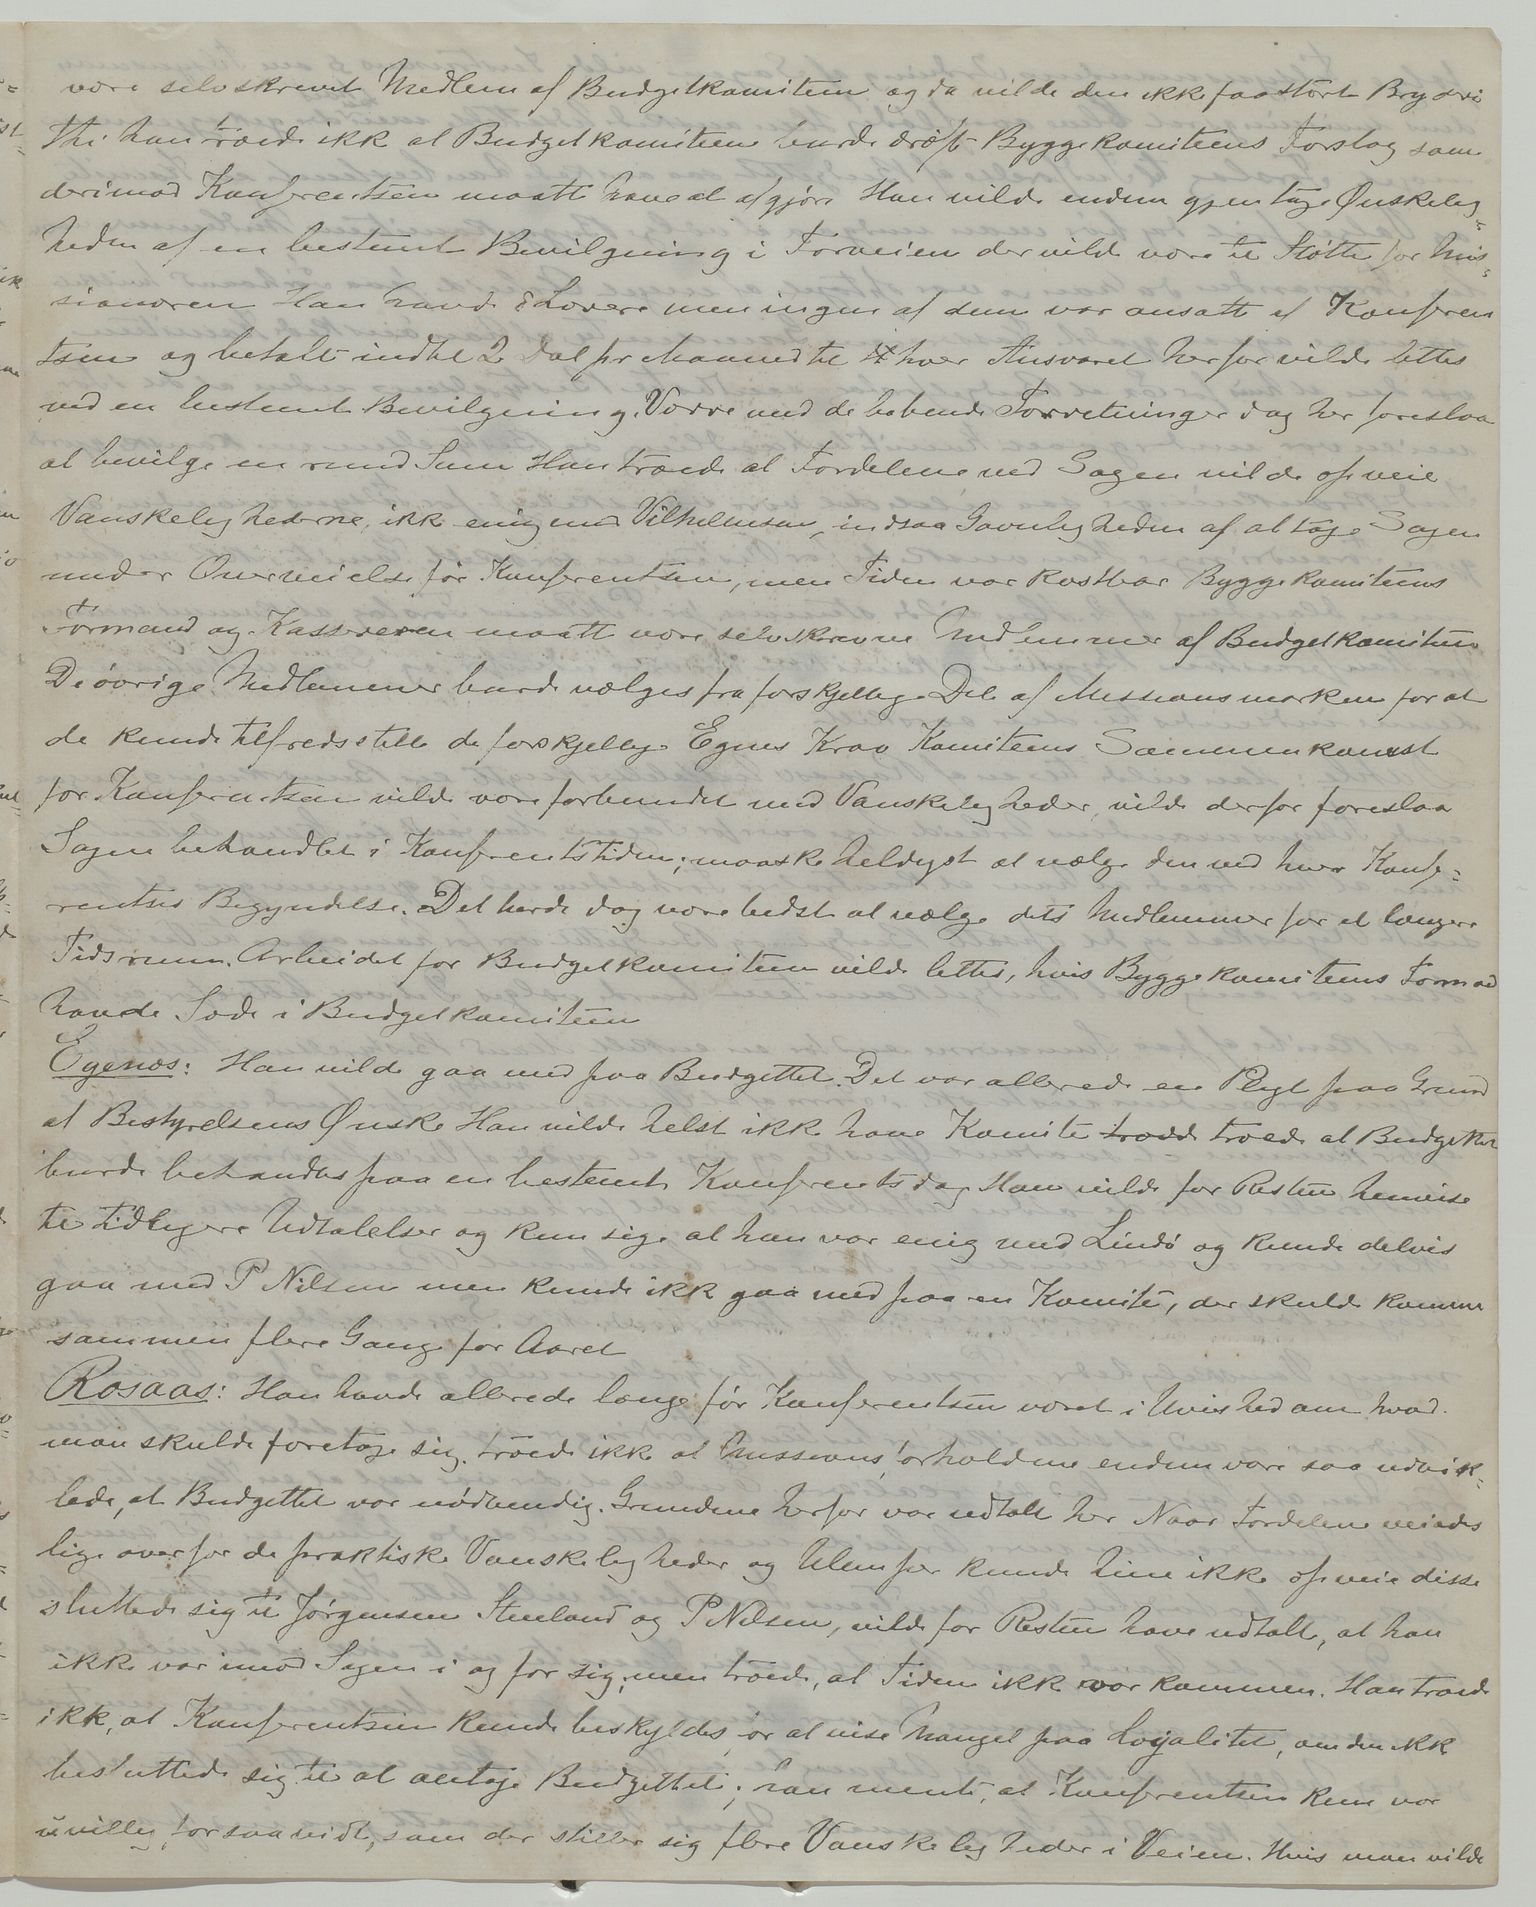 være selvskrevet Medlem af Budgetkomiteen og da vilde den ikke faa stort Bryderi
Thi han troede ikke at Budgetkomiteen burde drøfte Byggekomiteens Forslag som
derimod Konferentsen maatte have at afgjøre Han vilde endnu gjentage Ønskelig-
heden af en bestemt Bevilgning i Forveien der vilde være til Støtte for Mis-
sionæren Han havde 8 Lærere men ingen af dem var ansatte af Konferen
tsen og betalt indtil 2 Dol pr Maaned til hver Ansvaret herfor vilde lettes
ved en bestemt Bevilgning. Vorre med de løbende Forretninger dog her foreslaa
at bevilge en rund Sum Han troede at Fordelene ved Sagen vilde opveie
Vanskelighederne, ikke enig med Vilhelmsen, indsaa Gavnligheden af at tage Sagen
under Overveielse før Konferentsen, men Tiden var kostbar Byggekomiteens
Formand og Kassereren maatte være selvskrevne Medlemmer af Budgetkomiteen
De øvrige Medlemmer burde vælges fra forskjellige Dele af Missionsmarken for at
de kunde tilfredsstille de forskjellige Egnes Krav Komiteens Sammenkomst
før Konferentsen vilde være forbundet med Vanskeligheder, vilde derfor foreslaa
Sagen behandlet i Konferentstiden; maaske heldigst at vælge den ved hver Konfe-
rentses Begyndelse. Det burde dog være bedst at vælge dets Medlemmer for et længere
Tidsrum. Arbeidet for Budgetkomiteen vilde lettes, hvis Byggekomiteens Formand
havde Sæde i Budgetkomiteen
Egenæs: Han vilde gaa med paa Budgettet. Det var allerede en Pligt paa Grund
af Bestyrelsens Ønske Han vilde helst ikke have Komite troede at Budgettet
burde behandles paa en bestemt Konferentsdag Han vilde for Resten henvise
til tidligere Udtalelser og kun sige at han var enig med Lindø og kunde delvis
gaa med P Nilsen men kunde ikke gaa med paa en Komite, der skulde komme
sammen flere Gange for Aaret
Rosaas: Han havde allerede længe før Konferentsen været i Uvished om hvad
man skulde foretage sig. troede ikke at Missionsforholdene endnu vare saa udvik-
lede, at Budgettet var nødvendig. Grundene herfor var udtalt her Naar Fordelene veiedes
lige overfor de praktiske Vanskeligheder og Ulemper kunde hine ikke opveie disse
sluttede sig til Jørgensen Steeland og P Nilsen, vilde for Resten have udtalt, at han
ikke var imod Sagen i og for sig, men troede, at Tiden ikke var kommen. Han troede
ikke, at Konferentsen kunde beskyldes for at vise Mangel paa Loyalitet, om den ikke
besluttede sig til at antage Budgettet; han mente, at Konferentsen kun var
uvillig, forsaavidt, som der stiller sig flere Vanskeligheder i Veien. Hvis man vilde